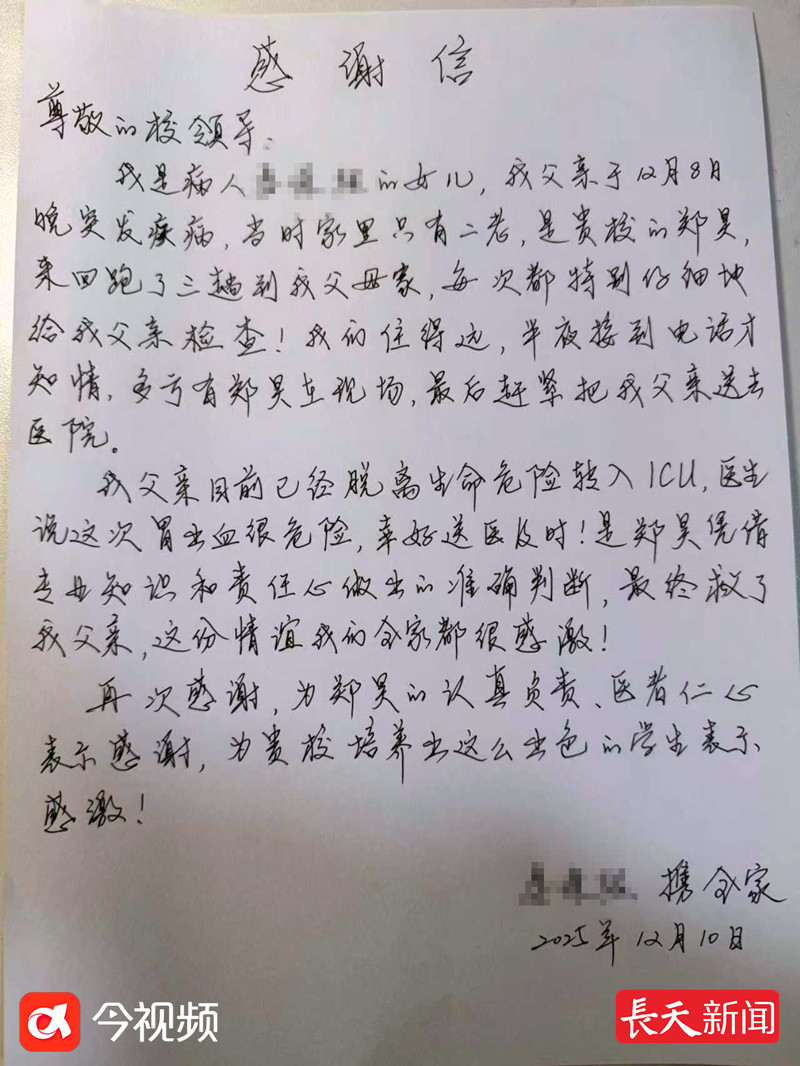 感谢信
尊敬的校领导：
我是病人 的女儿，我父亲于12月8日
晚突发疾病，当时家里只有二老，是贵校的郑昊，
来回跑了三趟到我父母家，每次都特别仔细地
给我父亲检查！我们住得远，半夜接到电话才
知情，多亏有郑昊在现场，最后赶紧把我父亲送去
医院。
我父亲目前已经脱离生命危险转入ICU，医生
说这次胃出血很危险，幸好送医及时！是郑昊凭借
专业知识和责任心做出的准确判断，最终救了
我父亲，这份情谊我们全家都很感激！
再次感谢，为郑昊的认真负责、医者仁心
表示感谢，为贵校培养出这么出色的学生表示
感激！
携全家
2025年12月10日
今视频
長天新闻